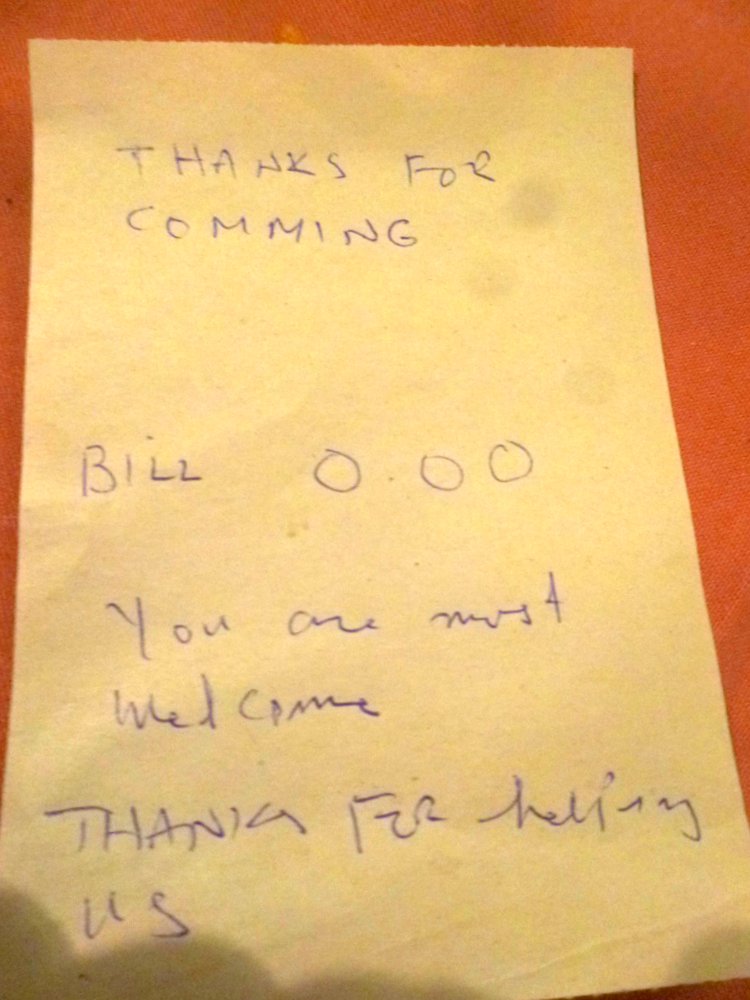 THANKS FOR
COMMING
BILL 0.00
You are most
Welcome
THANKS FOR helping
US